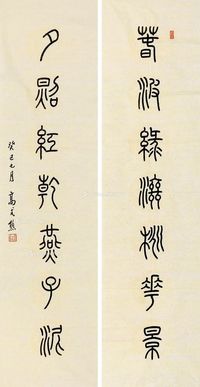 春波綠桃華景
夕照紅乾燕子泥
癸巳七月 高式熊